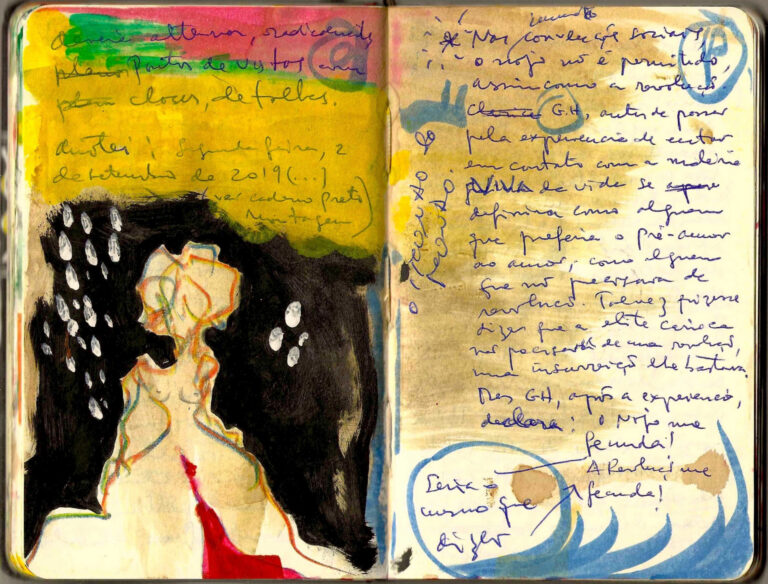 alterna, radicais,
Pontos de vistas com
clocus, de folhas.
Anotei: Segunda feira, 2
de setembro de 2019 (...)
(ver caderno preto
Montagem)
* Nas convenções sociais,
o nojo não é permitido,
assim como a revolução.
G.H, antes de passar
pela experiencia de entrar
em contato com a matéria
VIVA da vida se
definiria como alguem
que preferia o pré-amor
ao amor, como alguem
que não precisava de
revolução. Talvez quizesse
dizer que a elite carioca
não precisava de uma revolução,
uma insurreição lhe bastava.
Mas GH, após a experiencia,
declara: O Nojo me
fecunda!
A Revolução me
fecunda!
Seria o
mesmo que
dizer